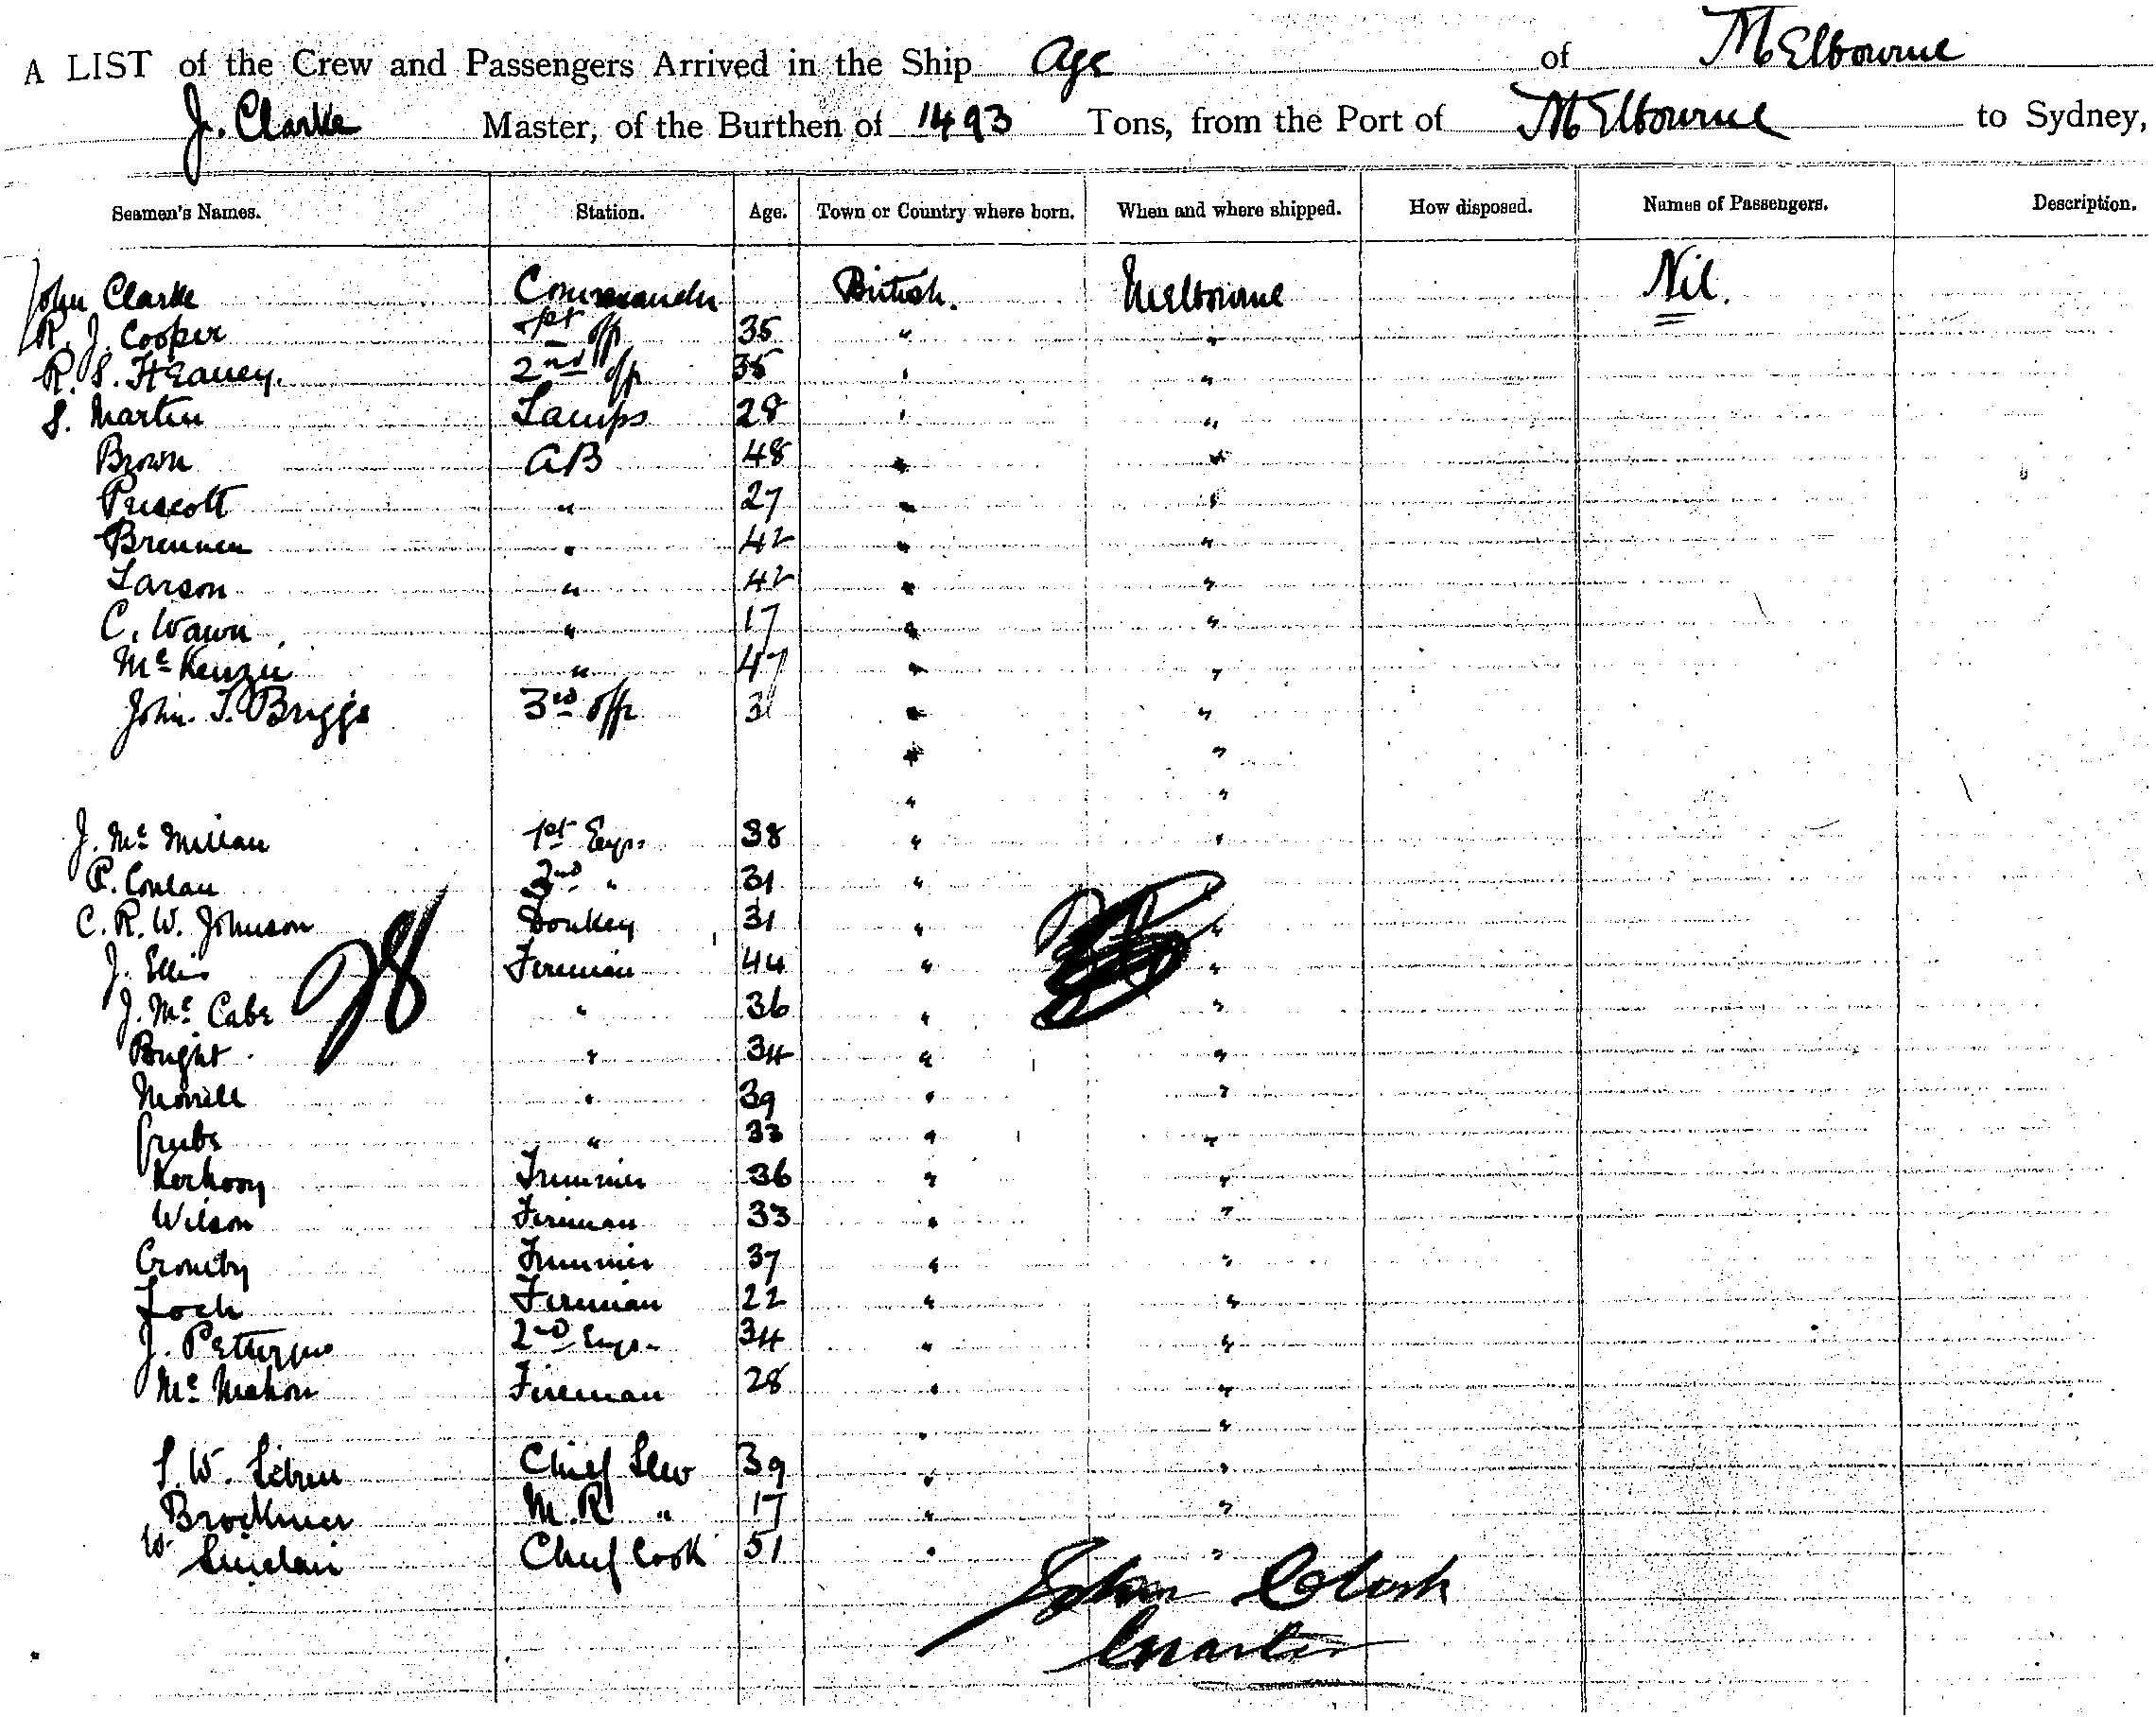 A LIST of the Crew and Passengers Arrived in the Ship Age of Melbourne
J. Clarke Master, of the Burthen of 1493 Tons, from the Port of Melbourne to Sydney,
Seamen's Names. Station. Age. Town or Country where born. When and where shipped. How disposed. Names of Passengers. Description.
John Clarke Commander British. Melbourne Nil.
R. J. Cooper 1st off 35 " "
R. S. Heaney. 2nd off 35 " "
S. Martin Lamps 28 " "
Brown AB 48 " "
Priscott " 27 " "
Brennen " 42 " "
Larson " 42 " "
C. Wawn " 17 " "
Mc Kenzie " 47 " "
John. T. Briggs 3rd offr 31 " "
" "
" "
J. Mc Millan 1st Engr. 38 " "
P. Conlan 2nd " 31 " "
C. R. W. Johnson Donkey 31 " "
J. Ellis Fireman 44 " "
J. Mc Cabe " 36 " "
28
Bright " 34 " "
Morrell " 39 " "
" 33 " "
Trimmer 36 " "
Wilson Fireman 33 " "
Cromby Trimmer 37 " "
Loch Fireman 22 " "
J. 2nd Engr. 34 " "
Mc Mahon Fireman 28 " "
" "
S. W. Chief Stew 39 " "
M. R " 17 " "
W. Sinclair Chief Cook 51 " "
John Clark
Master